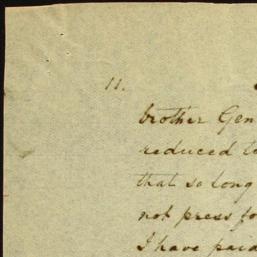 11.
brother Gen
reduced to
that so long
not press fo
I have paid